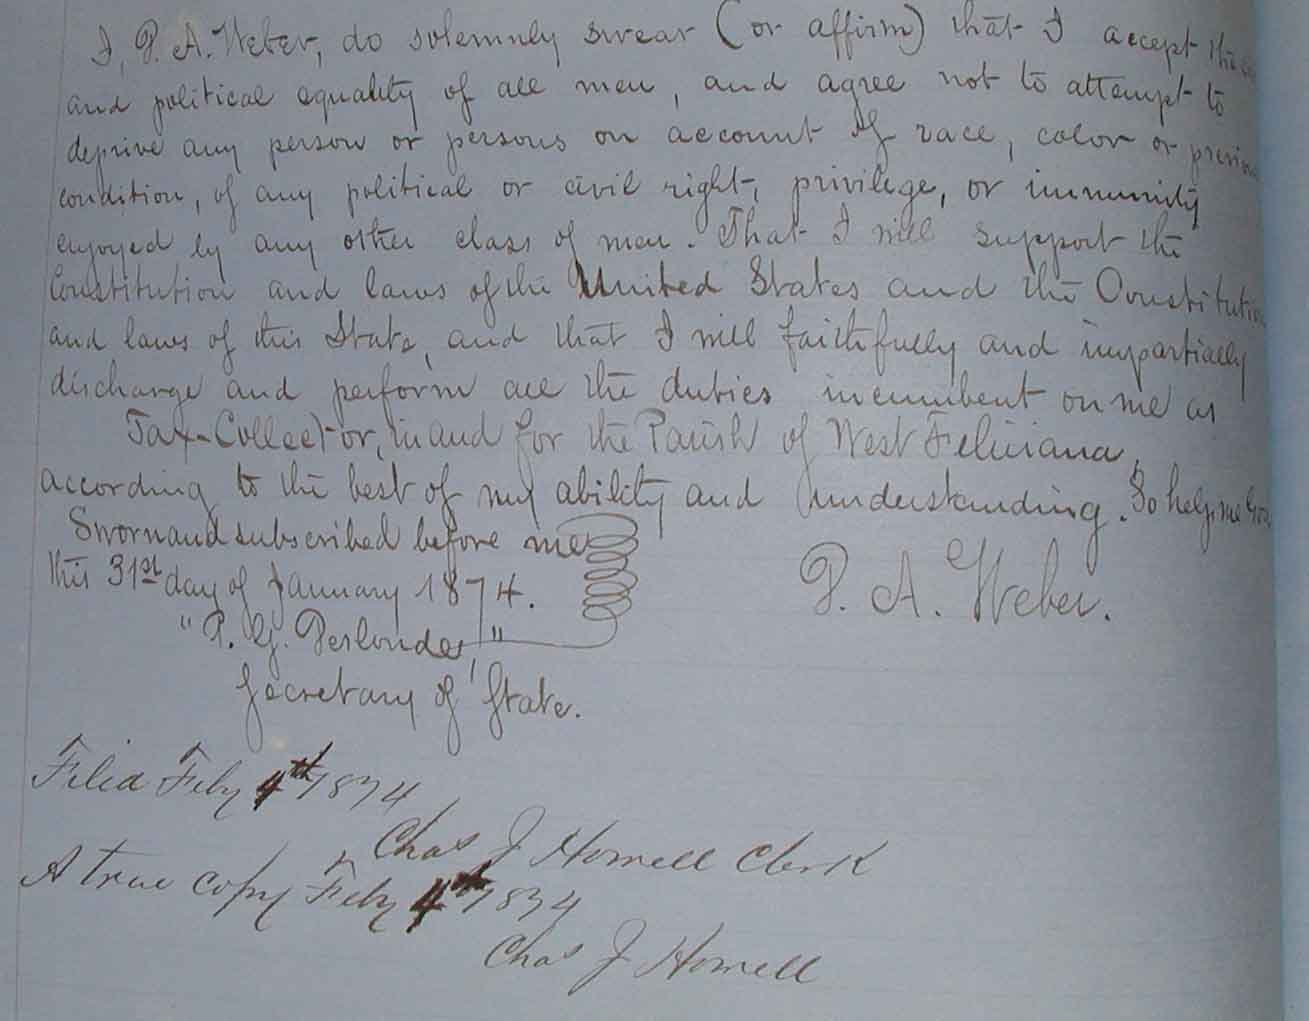 I, P. A. Weber, do solemnly swear (or affirm) that I accept the
and political equality of all men, and agree not to attempt to
deprive any person or persons on account of race, color or previou
condition, of any political or civil right, privilege, or immunity
enjoyed by any other class of men. That I will support the
Constitution and laws of the United States and the Constitution
and laws of this State, and that I will faithfully and impartially
discharge and perform all the duties incumbent on me as
Tax-Collector, in and for the Parish of West Feliciana,
according to the best of my ability and understanding. So help me God
Sworn and subscribed before me
this 31st day of January 1874.
P. A. Weber.
"P. G. Deslonde"
Secretary of State.
Filed Feby 4th 1874
Chas J Howell Clerk
A true copy Feby 4th 1874
Chas J Howell